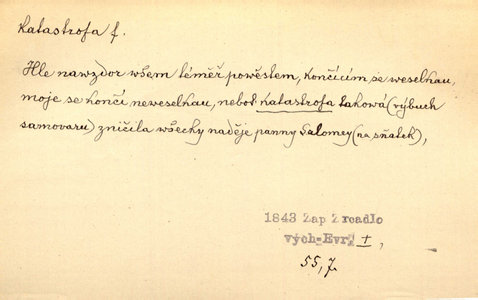 Katastrofa f.
Hle nawzdor wšem téměř powěstem, končícím se weselkau,
moje se končí neweselkau, nebot katastrofa taková (výbuch
samovaru) zničila wšecky naděje panny Salomey (na sňatek),
1843 Zap Zrcadlo
vých-Evr. I,
55,7.